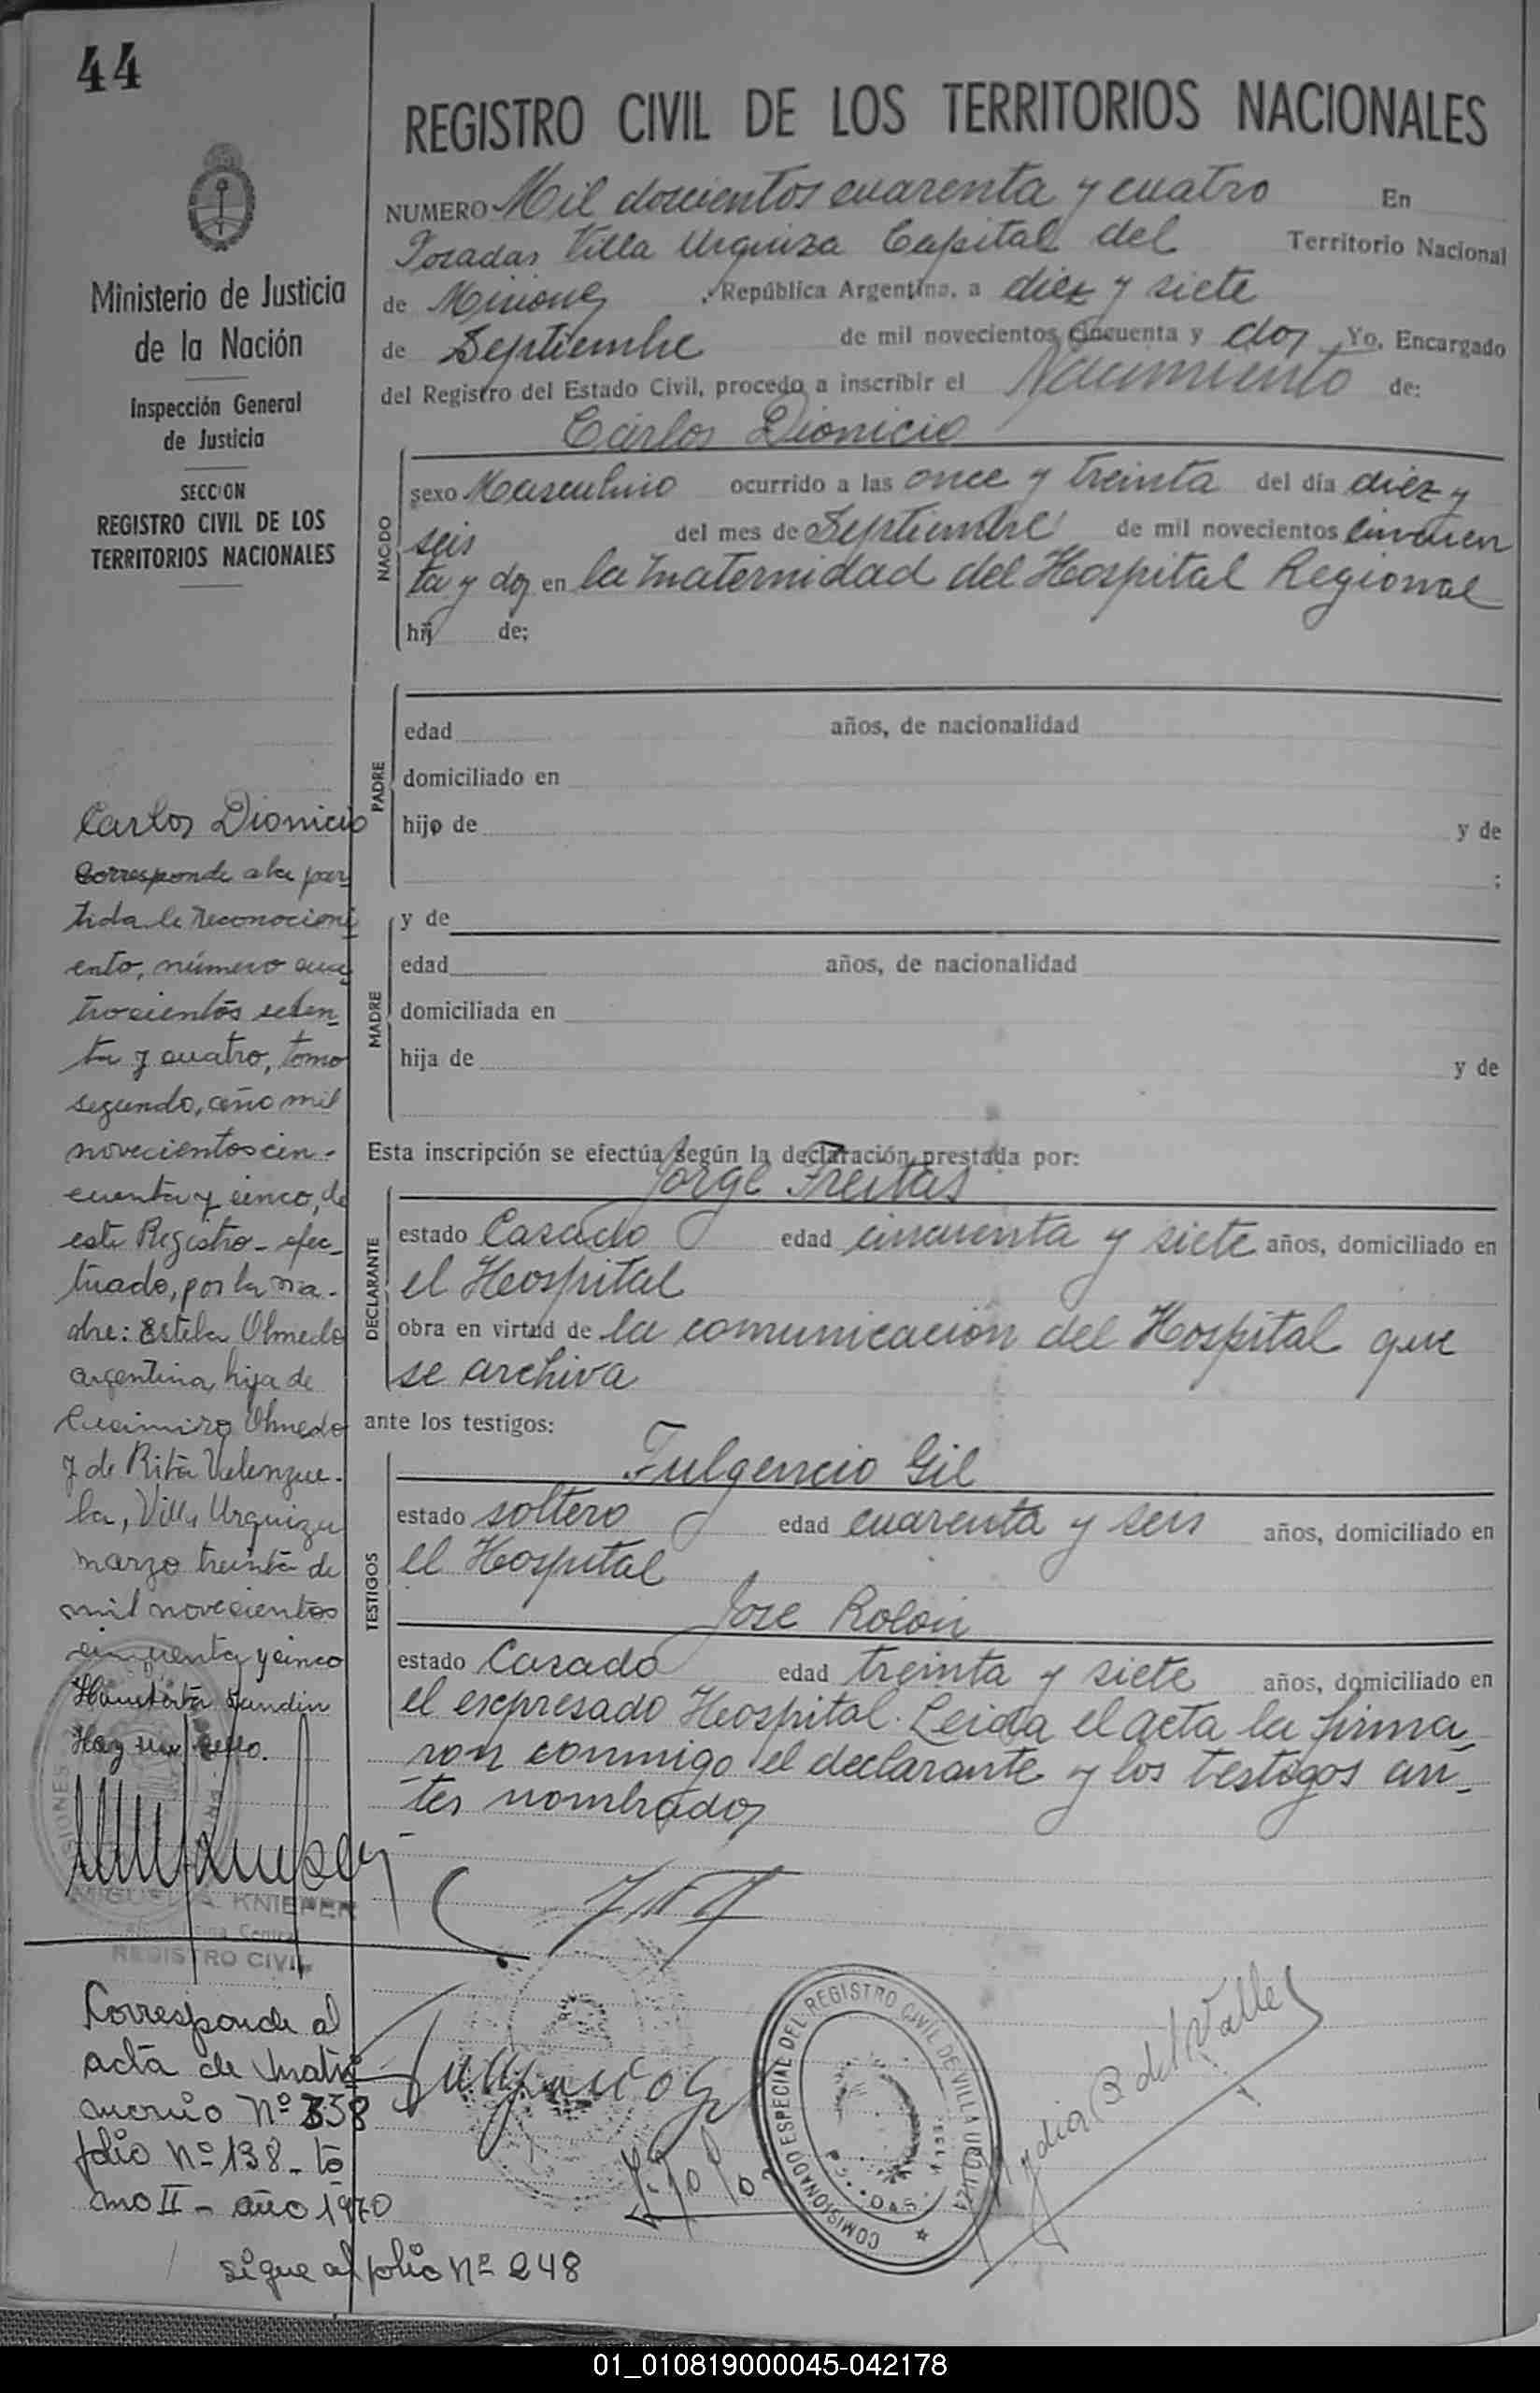 44
REGISTRO CIVIL DE LOS TERRITORIOS NACIONALES
NUMERO Mil doscientos cuarenta y cuatro En
Posadas Villa Urquiza Capital del Territorio Nacional
de Misiones, República Argentina, a diez y siete
de Septiembre de mil novecientos cincuenta y dos Yo, Encargado
del Registro del Estado Civil, procedo a inscribir el Nacimiento de:
Carlos Dionicio
NACIDO
sexo Masculino ocurrido a las once y treinta del día diez y
seis del mes de Septiembre de mil novecientos cincuen
ta y dos en la Maternidad del Hospital Regional
hij de;
PADRE
edad años, de nacionalidad
domiciliado en
hijo de y de
;
MADRE
y de
edad años, de nacionalidad
domiciliada en
hija de y de
Esta inscripción se efectúa según la declaración prestada por:
Jorge Freitas
DECLARANTE
estado Casado edad cincuenta y siete años, domiciliado en
el Hospital
obra en virtud de la comunicación del Hospital que
se archiva
ante los testigos:
Fulgencio Gil
TESTIGOS
estado soltero edad cuarenta y seis años, domiciliado en
el Hospital
Jose Rolon
estado Casado edad treinta y siete años, domiciliado en
el expresado Hospital. Leida el acta la firma
ron conmigo el declarante y los testigos an-
tes nombrados
Ministerio de Justicia
de la Nación
Inspección General
de Justicia
SECCION
REGISTRO CIVIL DE LOS
TERRITORIOS NACIONALES
Carlos Dionicio
Corresponde a la par
tida de reconocimi
ento, número cua
trocientos seten
ta y cuatro, tomo
segundo, año mil
novecientos cin-
cuenta y cinco, de
este Registro - efec-
tuado, por la ma-
dre: Estela Olmedo
argentina hija de
Casimiro Olmedo
y de Rita Valenzue-
la, Villa Urquiza
marzo treinta de
mil novecientos
cincuenta y cinco
Hay un sello.
MIGUEL A. KNIEPER
REGISTRO CIVIL
Corresponde al
acta de matri
monio Nº 338
folio Nº 138 - to
mo II - año 1970
sigue al folio Nº 248
COMISIONADO ESPECIAL DEL REGISTRO CIVIL DE VILLA URQUIZA
Lydia B del Valle
01_010819000045-042178